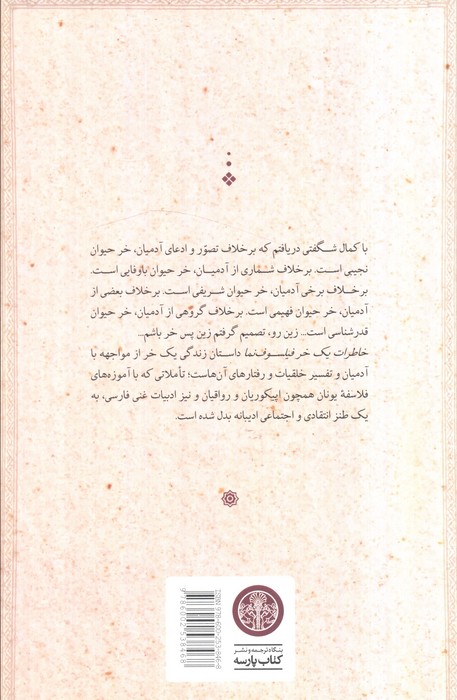 با کمال شگفتی دریافتم که برخلاف تصوّر و ادعای آدمیان، خر حیوان
نجیبی است. برخلاف شماری از آدمیان، خر حیوان باوفایی است.
برخلاف برخی آدمیان، خر حیوان شریفی است. برخلاف بعضی از
آدمیان، خر حیوان فهیمی است. برخلاف گروهی از آدمیان، خر حیوان
قدرشناسی است... زین رو، تصمیم گرفتم زین پس خر باشم...
خاطرات یک خر فیلسوف‌نما داستان زندگی یک خر از مواجهه با
آدمیان و تفسیر خلقیات و رفتارهای آن‌هاست؛ تأملاتی که با آموزه‌های
فلاسفهٔ یونان همچون اپیکوریان و رواقیان و نیز ادبیات غنی فارسی، به
یک طنز انتقادی و اجتماعی ادیبانه بدل شده است.
ISBN 978-600-253-846-8
9786002538468
بنگاه ترجمه و نشر
کتاب پارسه